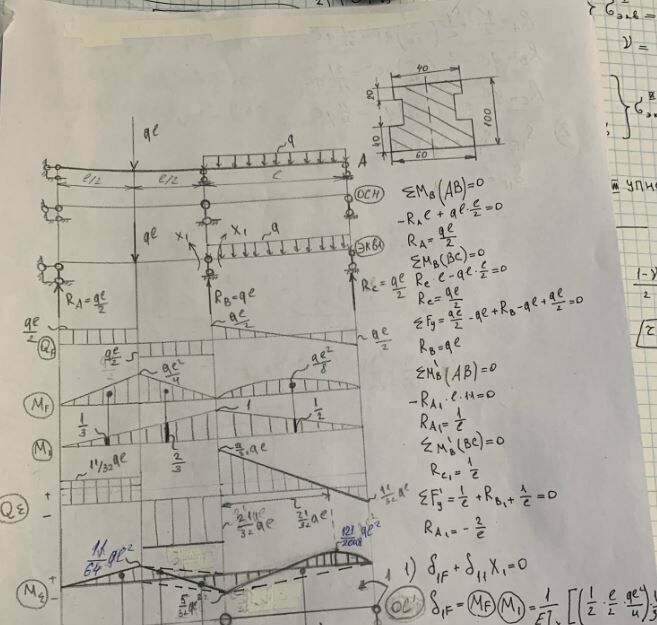 40
20
100
40
60
ql
q
A
l/2
l/2
l
ОСН
ql
X₁
X₁
q
ЭКВ
R_A = ql/2
R_B = ql
R_C = ql/2
ΣM_B(AB)=0
-R_A l + ql · l/2 = 0
R_A = ql/2
ΣM_B(BC)=0
R_C · l - ql · l/2 = 0
R_C = ql/2
ΣF_y = ql/2 - ql + R_B - ql + ql/2 = 0
R_B = ql
ΣM_B'(AB)=0
R_A₁ = 1/l
ΣM_B'(BC)=0
R_C₁ = 1/l
ΣF_y' = 1/l + R_B₁ + 1/l = 0
R_A₁ = -2/l
ql/2
Q_F
ql/2
ql/2
ql/2
M_F
ql²/4
ql²/8
M₁
1/3
2/3
1
1/2
Q_Σ
+
-
11/32 ql
21/32 ql
21/32 ql
11/32 ql
M_Σ
+
-
11/64 ql²
5/32 ql²
1) δ₁F + δ₁₁ X₁ = 0
δ₁F = M_F M₁ = 1/EI
ОС
1
σ_экв
ν =